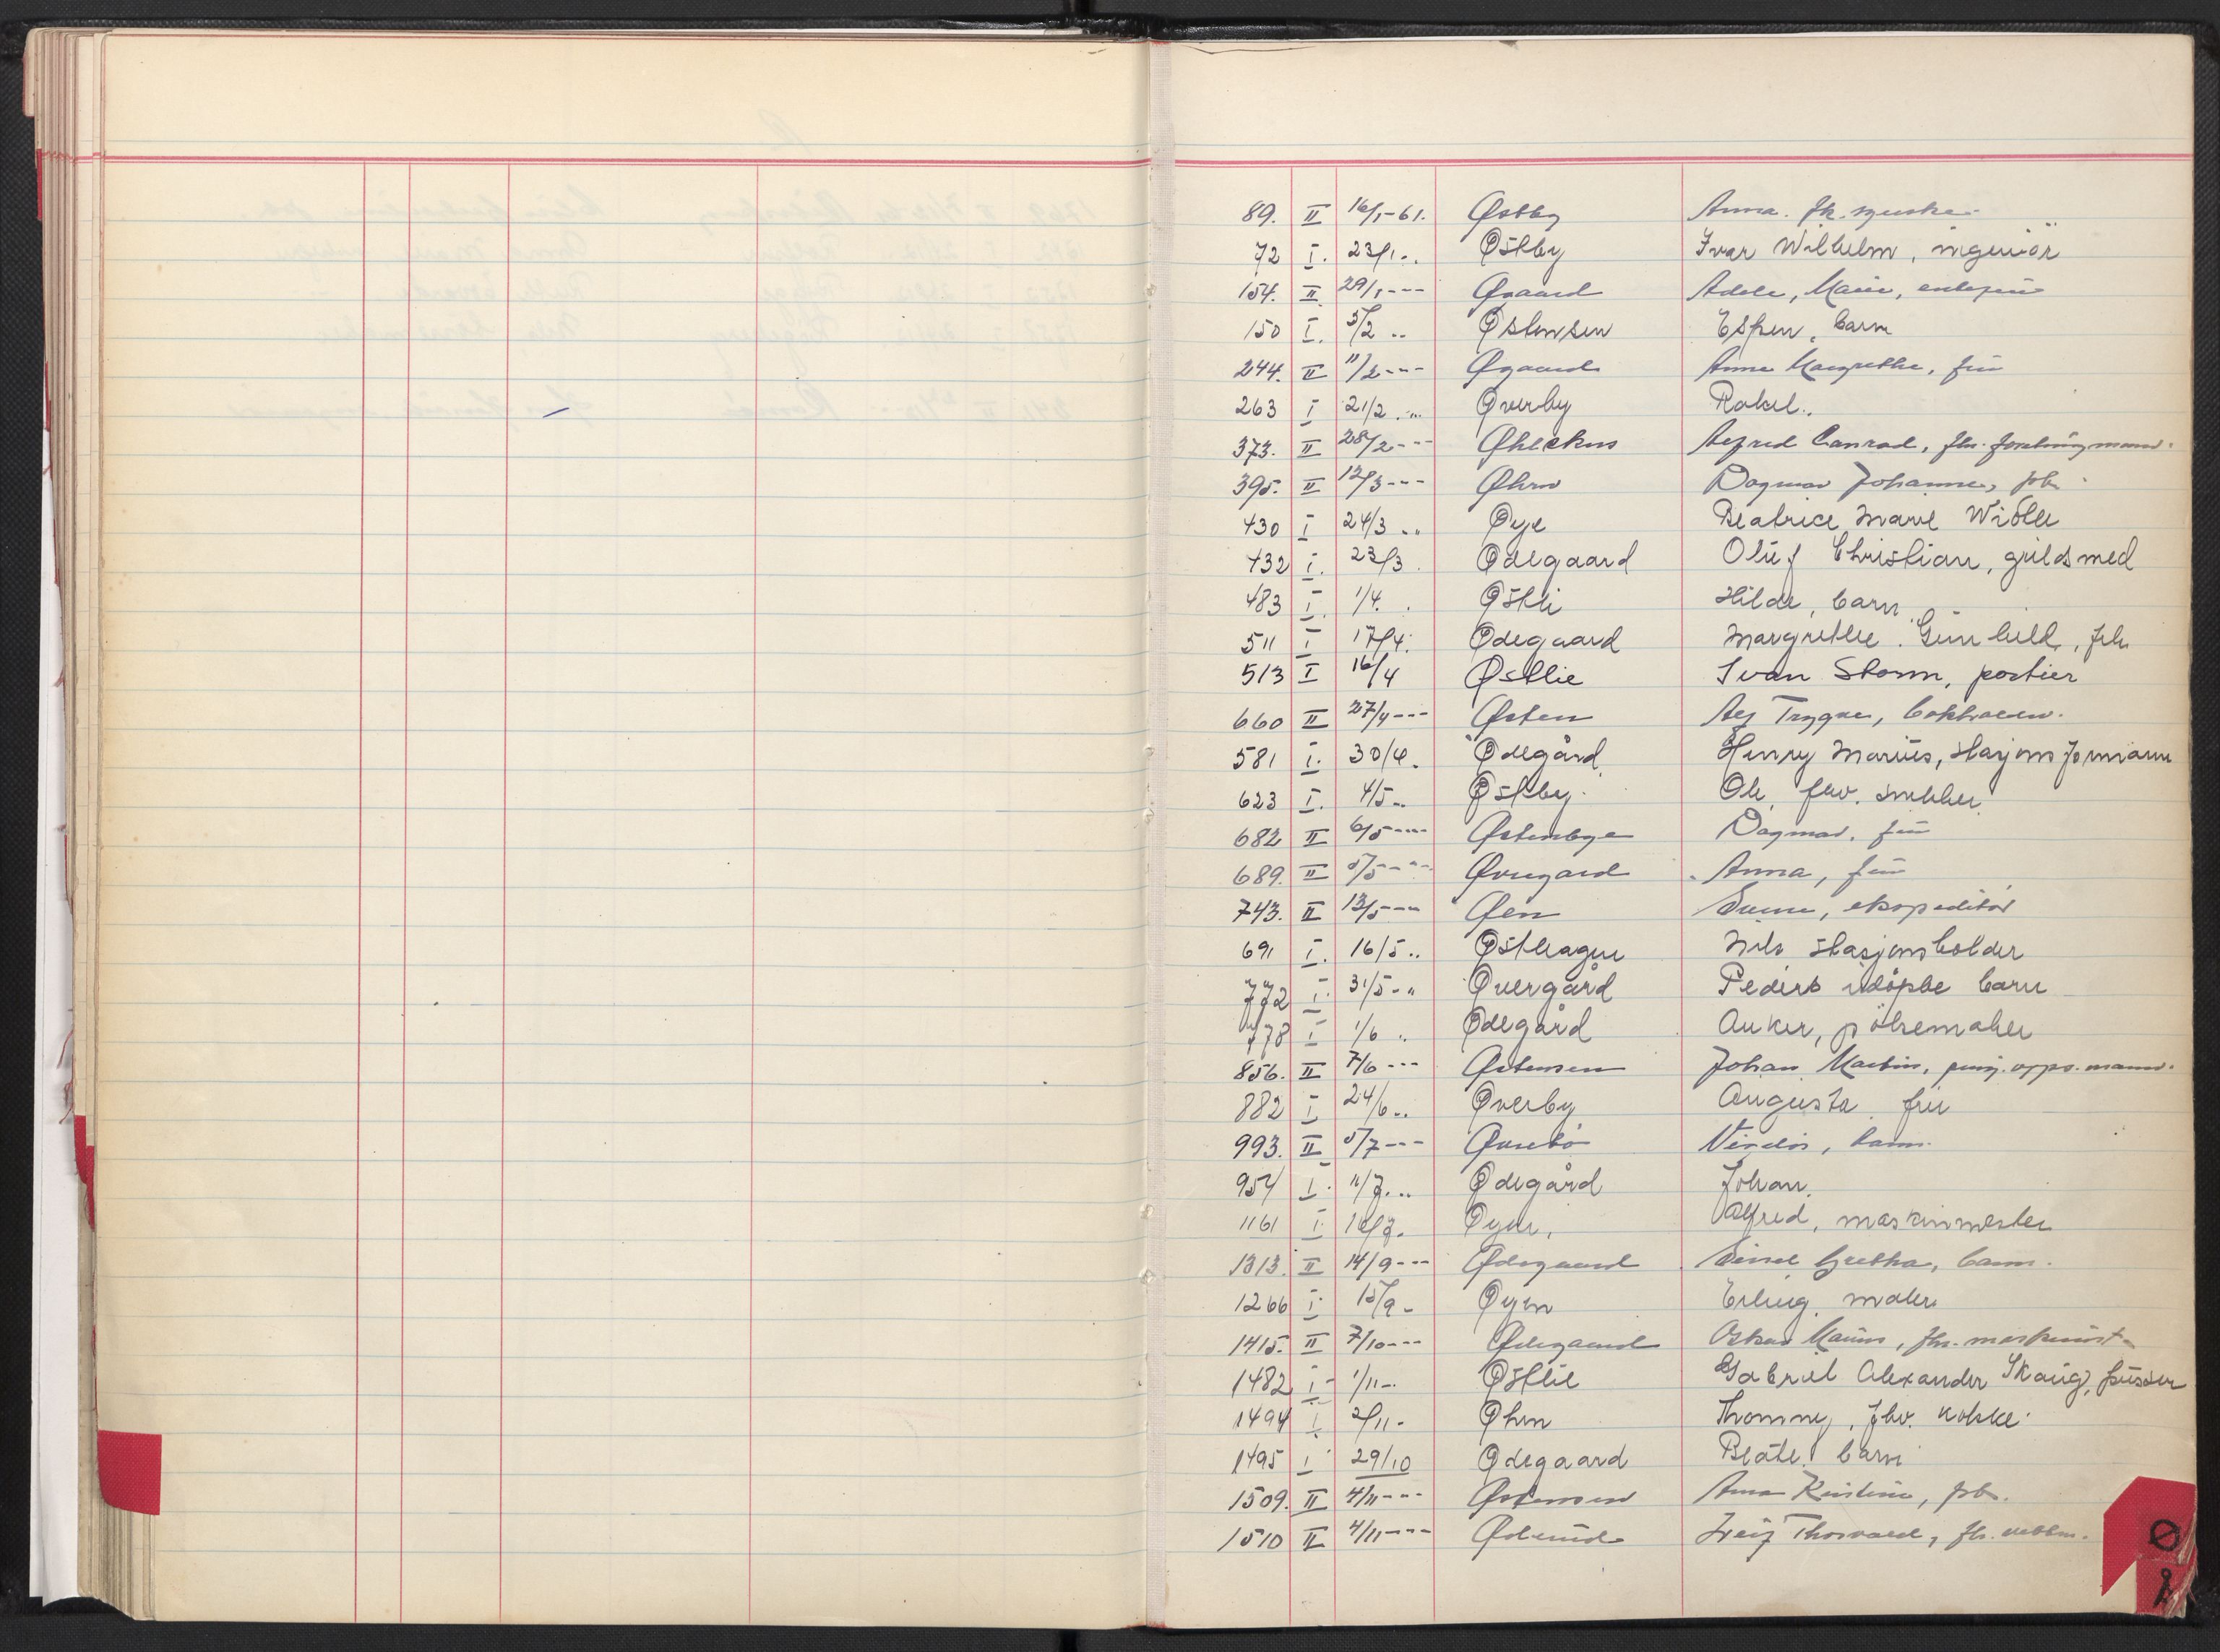 89. II 16/1-61. Østby Anna. fh. syerske
72 I. 23/1 .. Østby Ivar Wilhelm, ingeniör
154. II 29/1 --- Øgaard Adele, Marie, enkefru
150 I. 5/2 .. Østensen Espen, barn
244. II 11/2 --- Øgaard Anne Margrethe, frü
263 I 21/2 ... Øverby Rakel.
373. II 28/2 --- Alfred Conrad, fhv.
395. II 12/3 --- Øhrn Dagmar Johanne, frk.
430 I 24/3 .. Øye Beatrice Marie
432 I. 23/3 . Ødegaard Oluf Christian, gullsmed
483 I. 1/4. . Østli Hilde, barn
511 I 17/4. Ødegaard Margrethe Gunhild, frk.
513 I 16/4 Østlie Ivan Storm, portier
660 II 27/4 --- Østen Alf Trygve,
581 I. 30/4. Ødegård Henry Marius, stasjonsformann
623 I. 4/5 .. Østby. Ole fhv. snekker
682 II 6/5 --- Østenbye Dagmar, frü
689. II 5/5 --- Øvregard Anna, frü
743. II 13/5 --- Øen Sverre, ekspeditör
691 I. 16/5 .. Østhagen Nils stasjonsholder
772 I. 31/5 .. Øvergård Peders udöpte barn
778 I 1/6 .. Ødegård Anker, pölsemaker
856. II 7/6 --- Østensen Johan Martin, opps. mann.
882 I 24/6 .. Øverby Augusta frü
993. II 5/7 --- Øvrebö barn.
954 I. 11/7 ... Ødegård Johan.
1161 I. Øyen. Alfred, maskinmester
1313. II 14/9 --- Ødegaard Gretha, barn.
1266 I. 15/9 - Øyen Erling. maler
1415. II 7/10 --- Ødegaard Oskar Marius, fhv. maskinist
1482 I 1/11 -. Østlie Gabriel Alexander Skaug, pusser
1494 I 2/11 - Øhrn Thommy, fhv. kokke
1495 I 29/10 Ødegaard Beate. barn
1509. II 4/11 --- Østensen Anna Kristine, frk.
1510 II 4/11 --- Leif Thorvald, fh.
Ø
Å